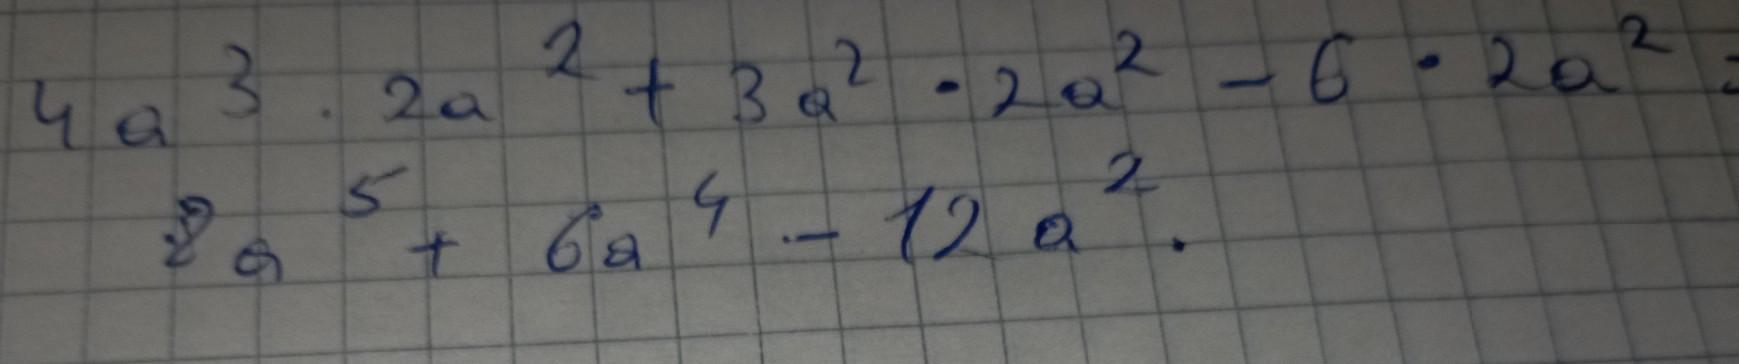 4a³ · 2a² + 3a² · 2a² - 6 · 2a² =
8a⁵ + 6a⁴ - 12a².